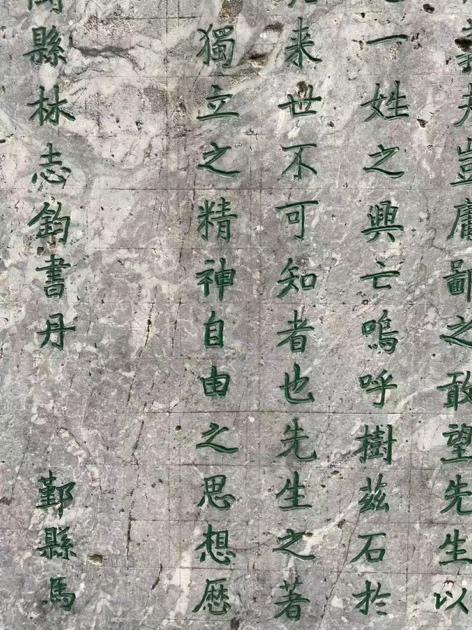 義夫豈庸鄙之敢望先生以
一姓之興亡嗚呼樹茲石於
来世不可知者也先生之著
獨立之精神自由之思想歷
閩縣林志鈞書丹 鄞縣馬